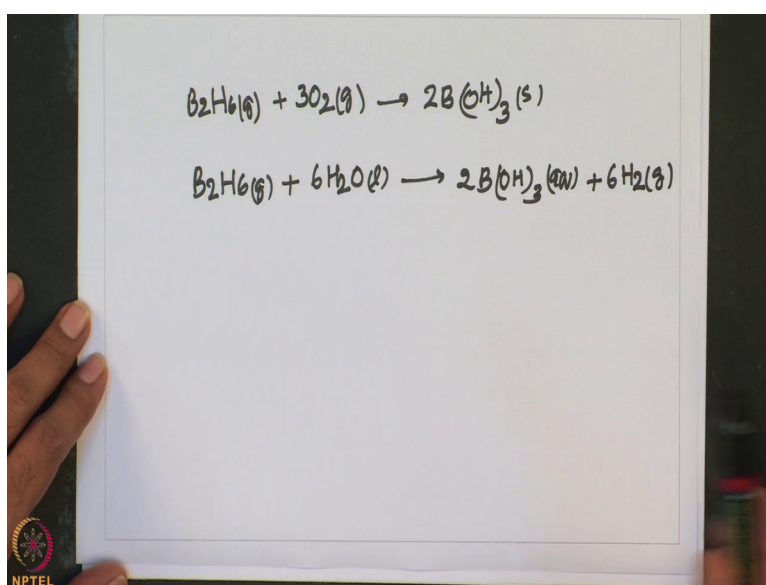 B2H6(g) + 3O2(g) → 2B(OH)3(s)
B2H6(g) + 6H2O(l) → 2B(OH)3(aq) + 6H2(g)
NPTEL